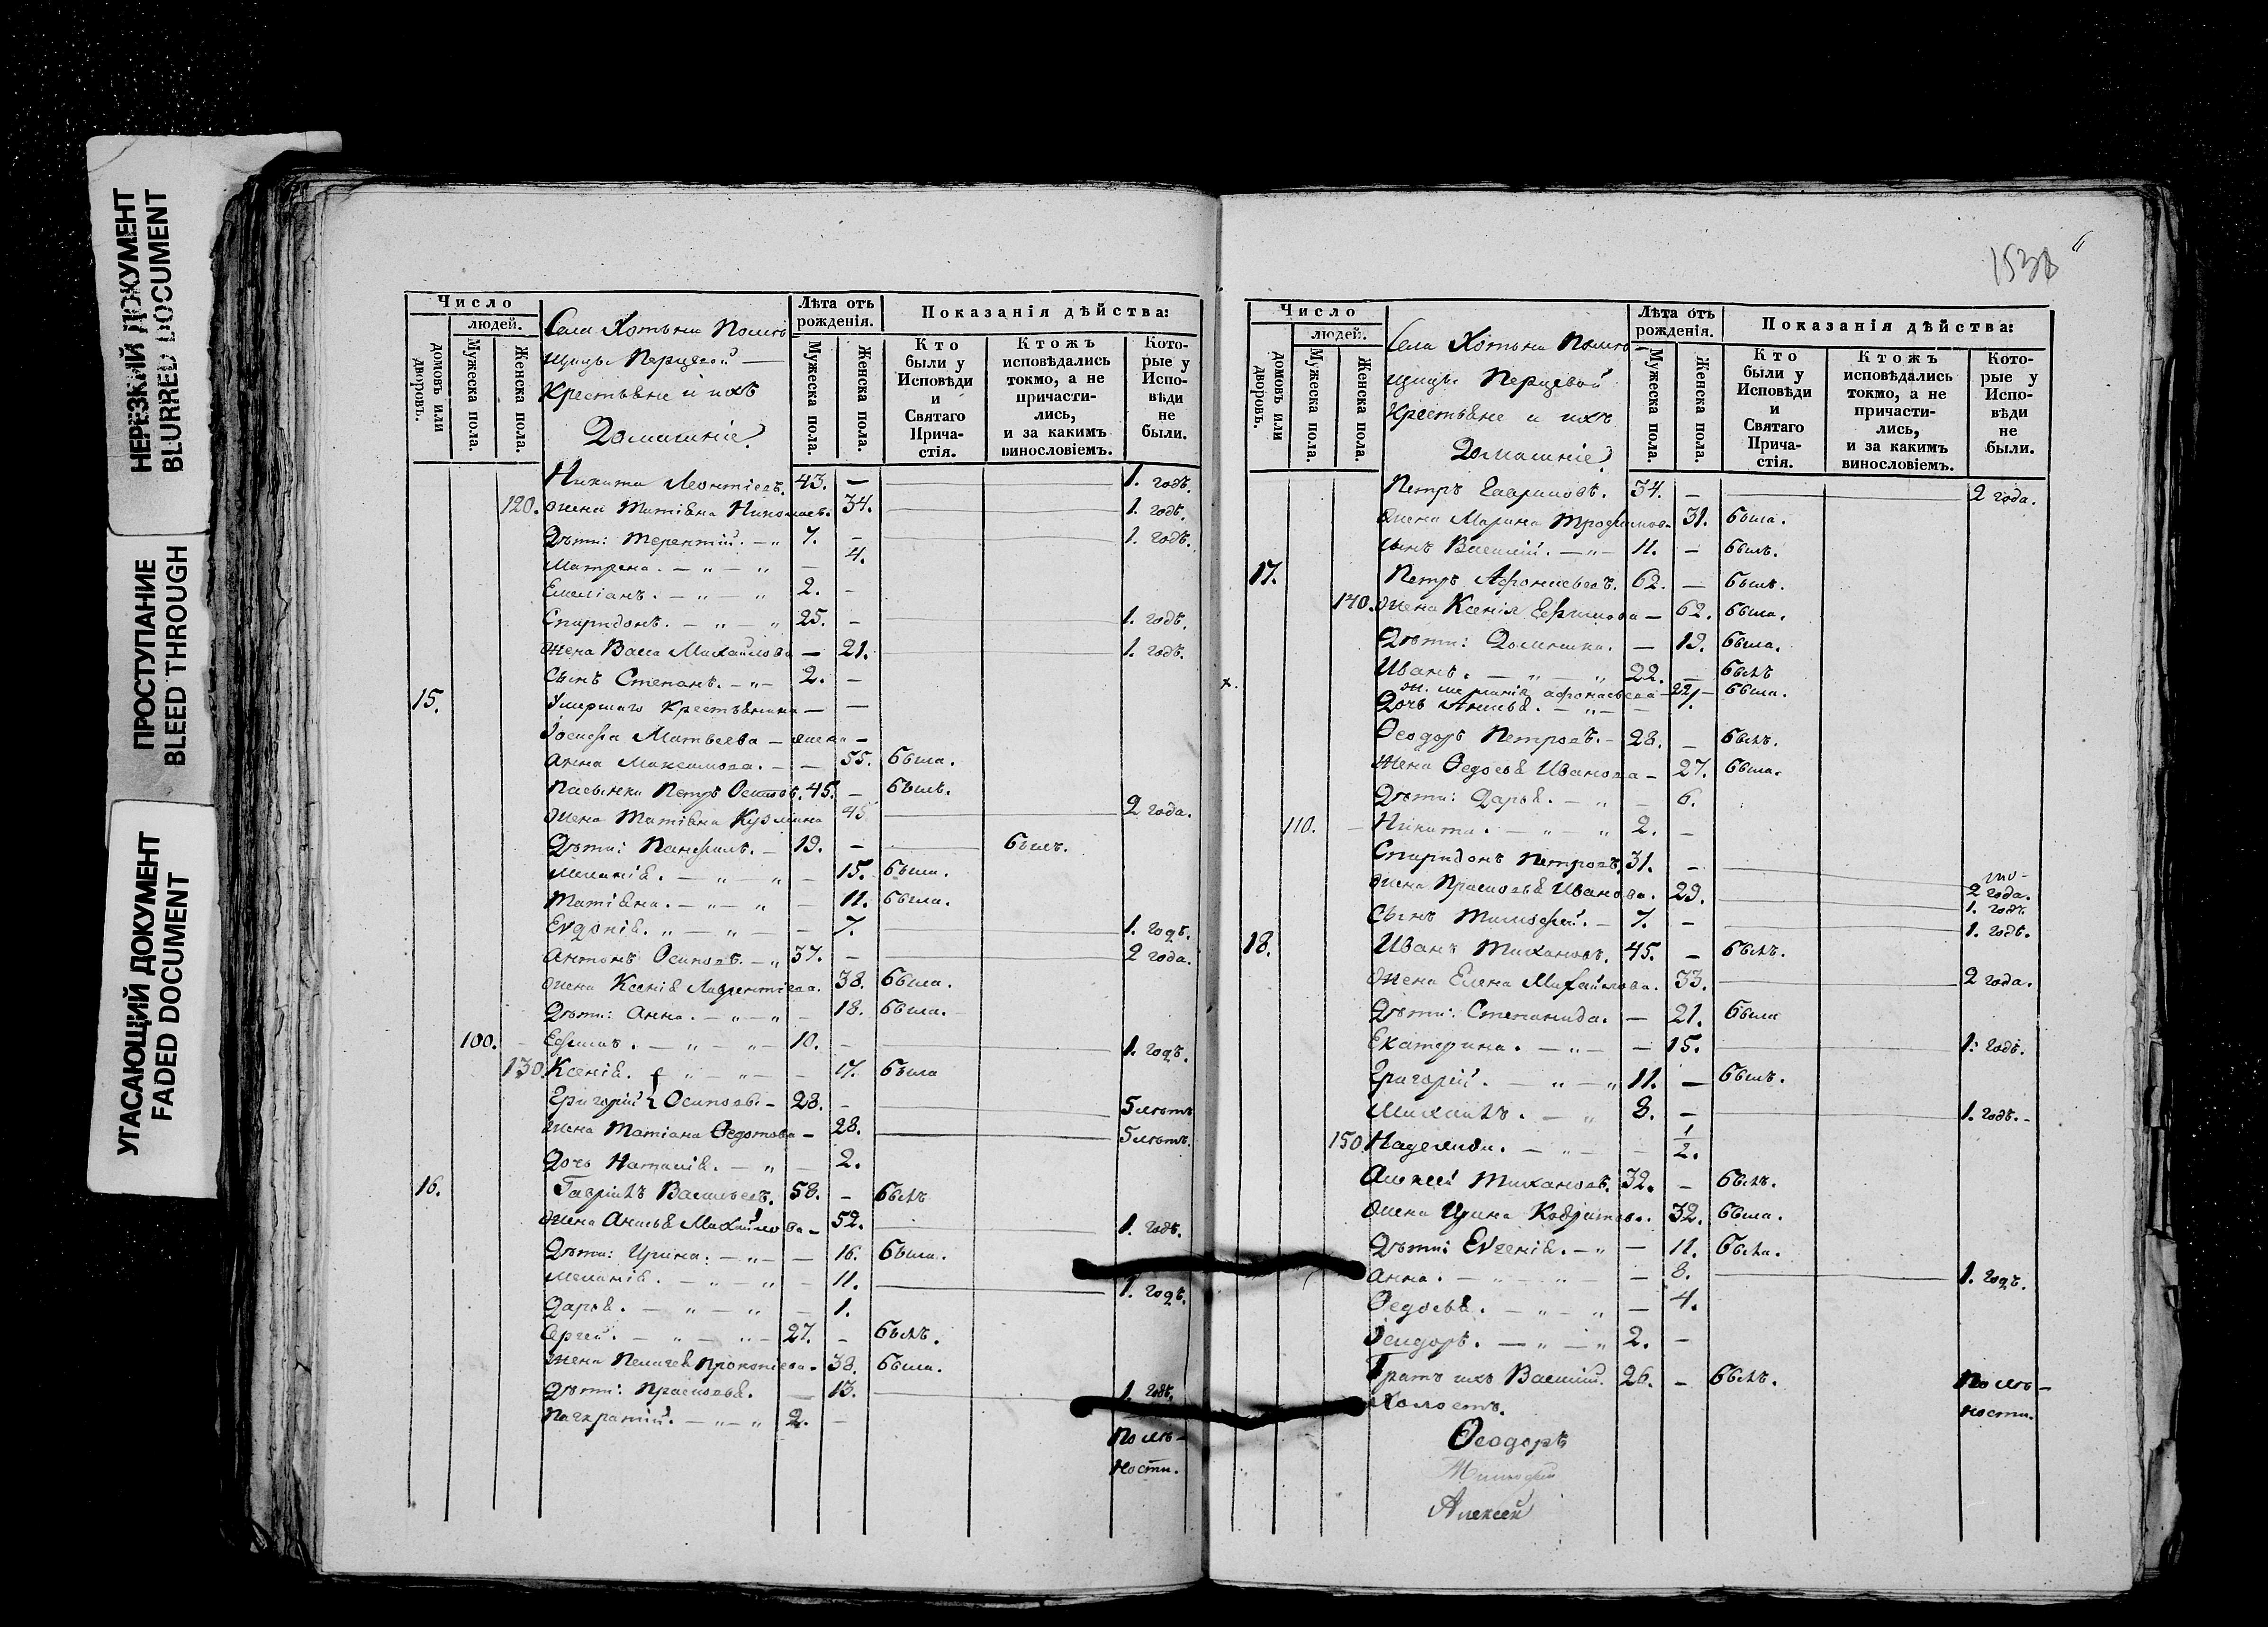 НЕРЕЗКИЙ ДОКУМЕНТ
BLURRED DOCUMENT
ПРОСТУПАНИЕ
BLEED THROUGH
УГАСАЮЩИЙ ДОКУМЕНТ
FADED DOCUMENT
Число
людей.
домовъ или дворовъ.
Мужеска пола.
Женска пола.
Села Хотьни Помѣ-
щицы Перцевой
Крестьяне и ихъ
Домашніе
Лѣта отъ рожденія.
Мужеска пола.
Женска пола.
Показанія дѣйства:
Кто были у Исповѣди и Святаго Причастія.
Ктожъ исповѣдались токмо, а не причастились, и за какимъ винословіемъ.
Которые у Исповѣди не были.
Никита Леонтіевъ. 43. — 1. годъ.
120. жена Татіяна Николаев. 34. 1. годъ.
Дѣти: Терентій. — „ 7. — 1. годъ.
Матрена. — „ — „ — 4.
Емеліанъ. — „ — „ 2. —
Спиридонъ. — „ — „ 25. — 1. годъ.
жена Васса Михайлова — 21. 1. годъ.
Сынъ Степанъ. — „ — 2. —
15. Умершаго Крестьянина — —
Іосифа Матвеева — жена —
Анна Максимова. — — 55. была.
Пасынки Петръ Осиповъ. 45. — былъ.
жена Татіяна Кузмина 45. 2 года.
Дѣти: Панфилъ. — 19. — былъ.
Меланія. — „ — „ — 15. была.
Татіяна. — „ — „ — 11. была.
Евдокія. „ — „ — — 7. 1. годъ.
Антонъ Осиповъ. — „ 37. — 2 года.
жена Ксенія Лаврентіева. 38. была.
Дѣти: Анна. — „ — „ — 18. была.
100. Ефимъ. — „ — „ — 10. — 1. годъ.
130. Ксенія. „ — „ — — 17. была
Григорій Осиповъ. — 28. — 5 лѣтъ
жена Татіана Ѳедотова — 28. 5 лѣтъ.
Дочь Наталія. — „ — 2.
16. Гавріилъ Васильевъ. 58. — былъ
жена Анисья Михайлова — 52. 1. годъ.
Дѣти: Ирина: — „ — — 16. была.
Меланія. — „ — „ — 11. 1. годъ.
Дарья. — „ — „ — 1.
Сергей. — „ — „ — 27. — былъ.
жена Пелагея Прокопіева — 38. была.
Дѣти: Прасковья. — 13. 1. годъ.
Панкратій. — „ — „ 2. —
По лѣ-
ности.
1538
Число
людей.
домовъ или дворовъ.
Мужеска пола.
Женска пола.
Села Хотьни Помѣ-
щицы Перцевой
Крестьяне и ихъ
Домашніе
Лѣта отъ рожденія.
Мужеска пола.
Женска пола.
Показанія дѣйства:
Кто были у Исповѣди и Святаго Причастія.
Ктожъ исповѣдались токмо, а не причастились, и за какимъ винословіемъ.
Которые у Исповѣди не были.
Петръ Гавриловъ. 34. — 2 года.
жена Марина Трофимов. 31. была.
сынъ Василій. — „ — 11. — былъ.
17. Петръ Афонасьевъ. 62. — былъ.
140. жена Ксенія Ефимова — 62. была.
Дѣти: Домникія. — 19. была.
Иванъ. — „ — „ 22. — былъ
х. ж. Меланія Афонасьева — 22 — была.
Дочь Анисья. — „ — — 1.
Ѳеодоръ Петровъ. — 28. — былъ.
жена Ѳедосья Иванова — 27. была.
Дѣти: Дарья. — „ — 6.
110. — Никита. — „ — „ 2. —
Спиридонъ Петровъ, 31. — 2 года.
жена Прасковья Иванова. 29. 1. годъ
Сынъ Тимофей. — 7. — 1. годъ.
18. Иванъ Тихановъ. 45. — былъ.
жена Елена Михайлова. 33. 2 года.
Дѣти: Степанида. — 21. была
Екатерина. — „ — — 15. 1. годъ.
Григорій. — „ — „ 11. — былъ.
Михаилъ. — „ 8. — 1. годъ. -
150. Надежда. — „ — — 1/2.
Алексей Тихановъ. 32. — былъ.
жена Ирина Кодратова. 32. была.
Дѣти: Евгенія. — „ — 11. была.
Анна. — „ — „ — 8. 1. годъ.
Ѳедосья. — „ — „ — 4.
Ісидоръ. — „ — „ 2. —
Братъ ихъ Василій. 26. — былъ. По лѣ-
Холостъ. ности.
Ѳеодоръ
Тимофей
Алексей